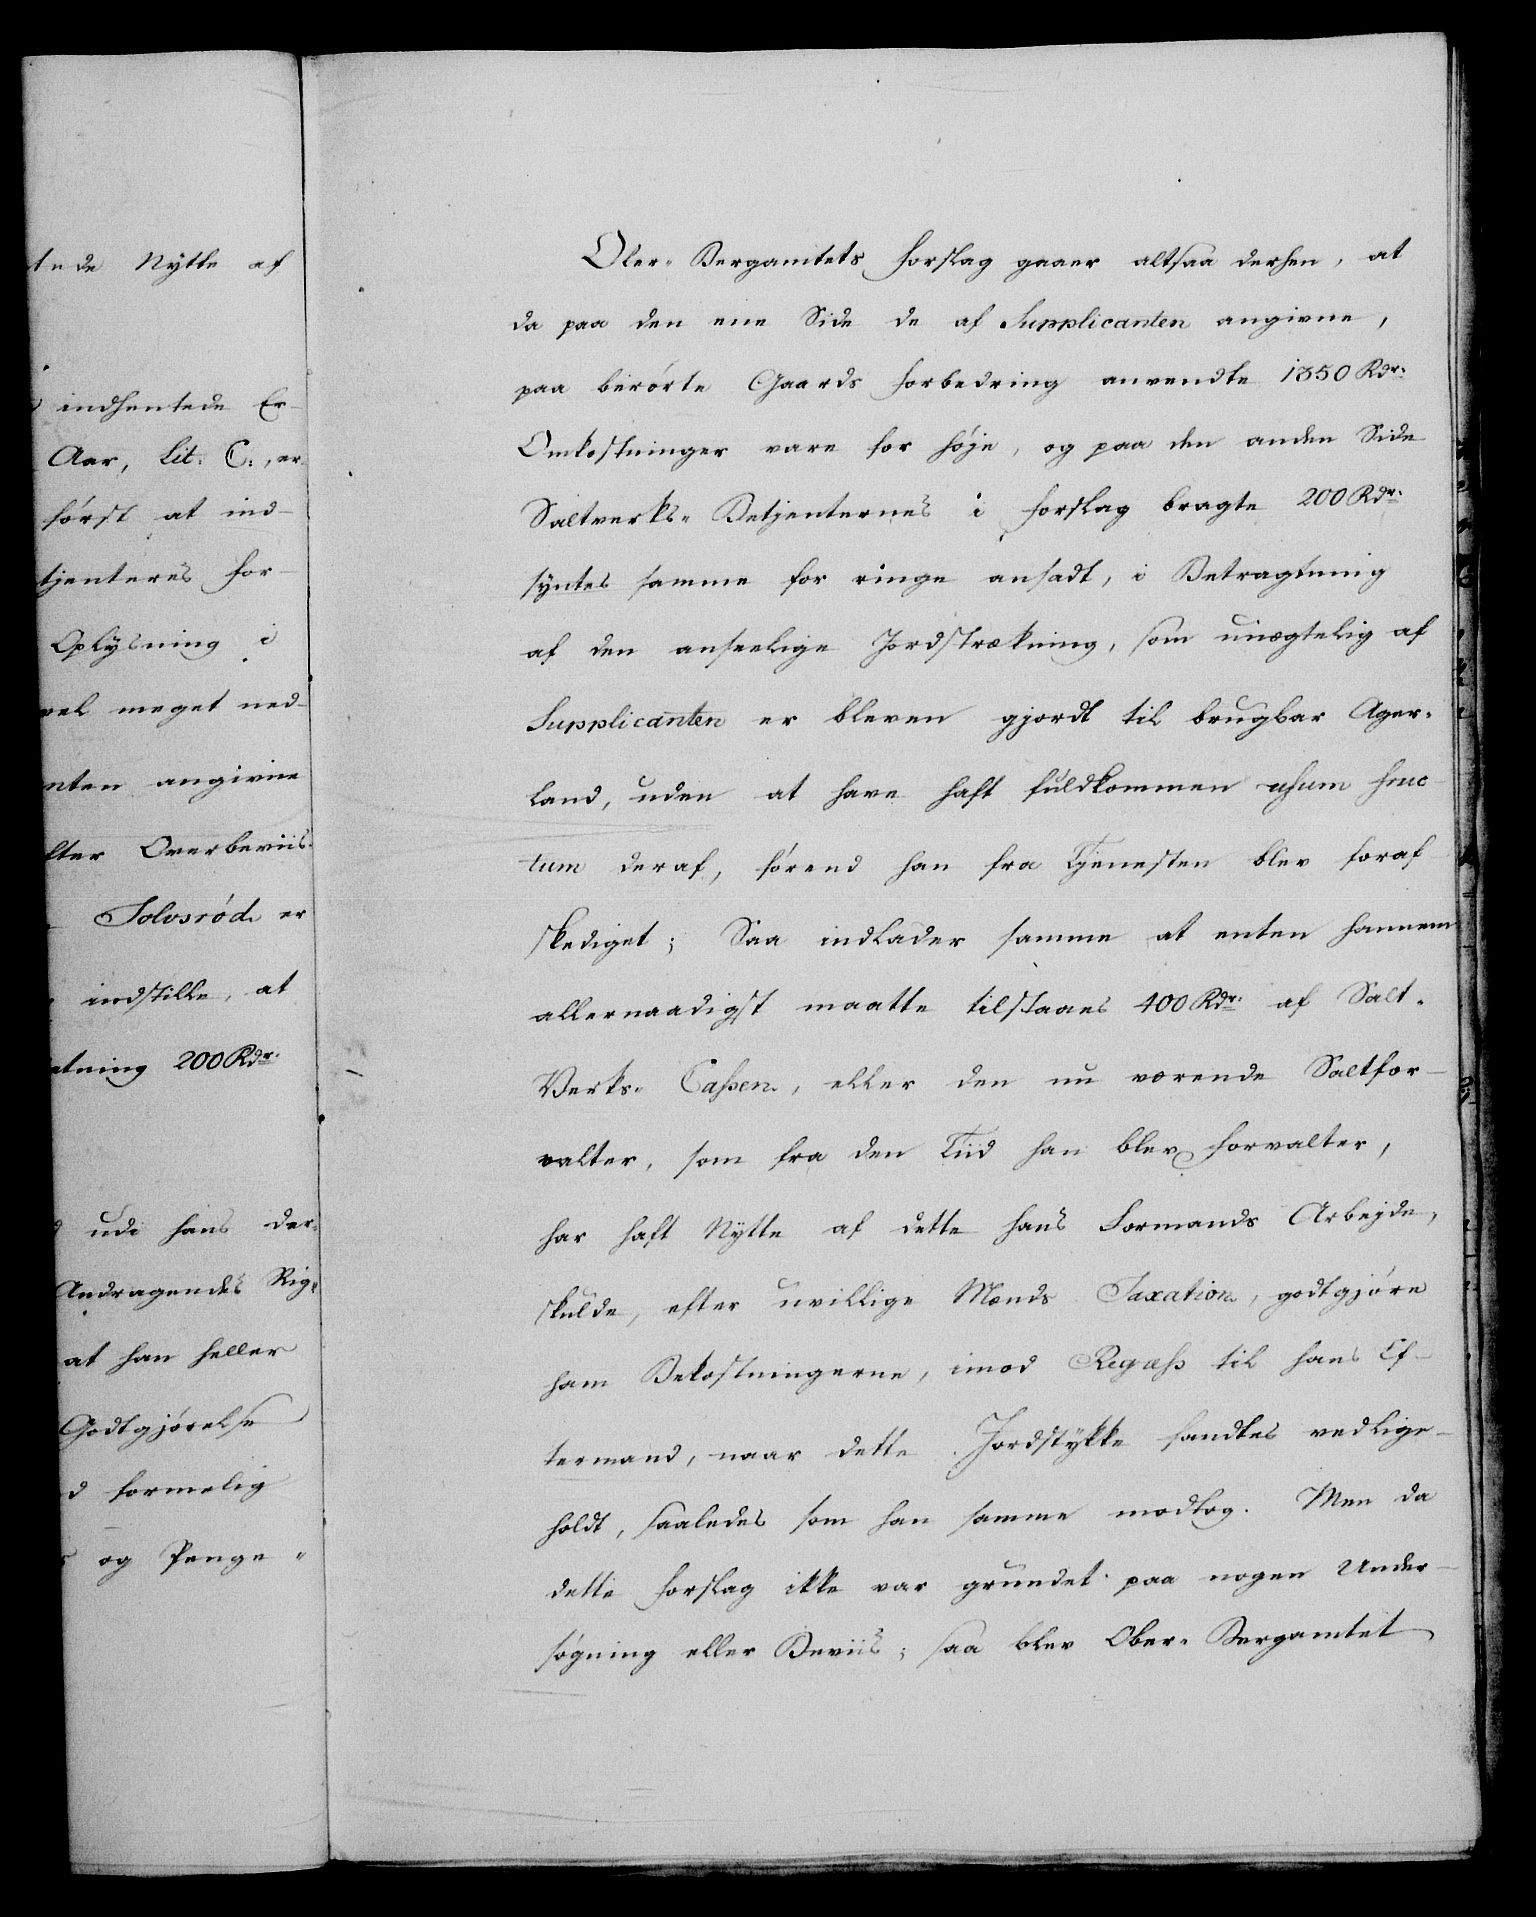 tede Nytte af
indhentede Er-
Aar, Lit: C:, er
först at ind-
tjenteres For-
Oplysning i
vel meget ned-
nten angivne
fter Overbeviis-
Solvsröd er
indstille, at
tning 200 Rdr.
udi hans der-
Andragendes Rig-
at han heller
Godtgjörelse
d formelig
og Penge-
Ober-Bergamtets Forslag gaaer altsaa derhen, at
da paa den ene Side de af Supplicanten angivne,
paa berörte Gaards Forbedring anvendte 1350 Rdr.
Omkostninger vare for höje, og paa den anden Side
Saltverks-Betjenternes i Forslag bragte 200 Rdr.
syntes samme for ringe ansadt, i Betragtning
af den anseelige Jordstrækning, som unægtelig af
Supplicanten er bleven gjordt til brugbar Ager-
land, uden at have haft fuldkommen usum fruc
tum deraf, förend han fra Tjenesten blev foraf
skediget; Saa indlader samme at enten hannem
allernaadigst maatte tilstaaes 400 Rdr. af Salt-
Verks-Cassen, eller den nu værende Saltfor-
valter, som fra den Tiid han blev Forvalter,
har haft Nytte af dette hans Formands Arbejde,
skulde, efter uvillige Mænds Taxation, godtgjöre
ham Bekostningerne, imod Regæss til hans Ef-
termand, naar dette Jordstykke fandtes vedlige-
holdt, saaledes som han samme modtog. Men da
dette Forslag ikke var grundet paa nogen Under-
sögning eller Beviis; saa blev Ober-Bergamtet